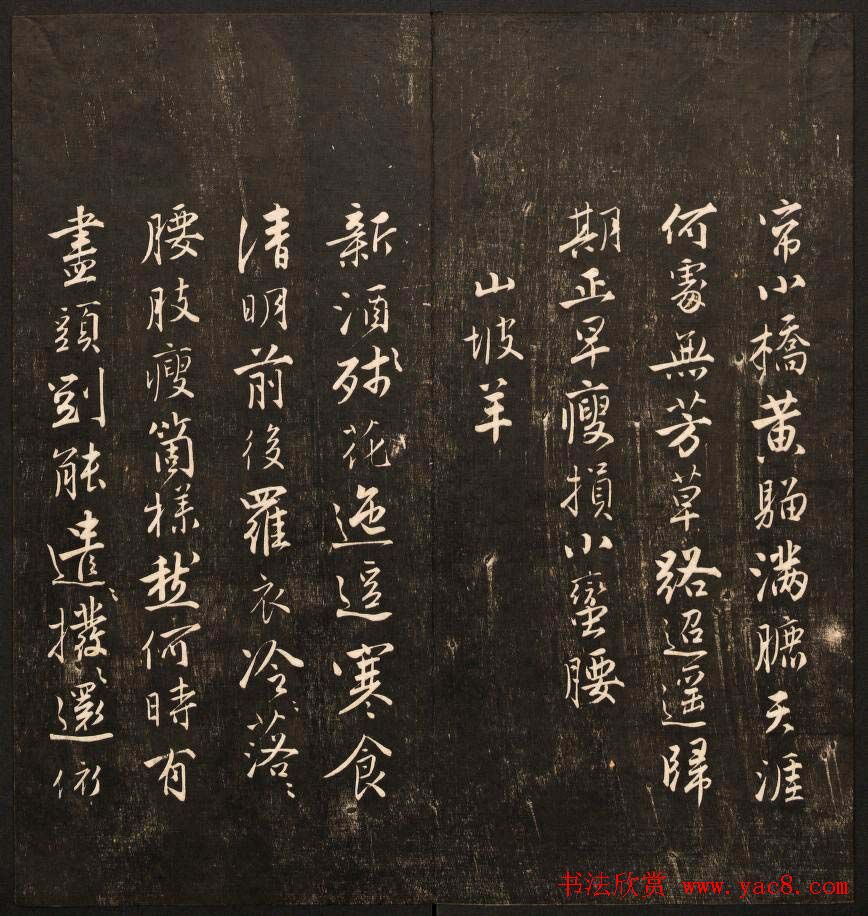 小橋黄滿天涯
何處無芳草路迢遥歸
期正早瘦損小蠻腰
山坡羊
新酒殘花迤逗寒食
清明前後羅衣冷落
腰肢瘦箇樣愁何時有
盡頭能遣撥還依
书法欣赏 www.yac8.com